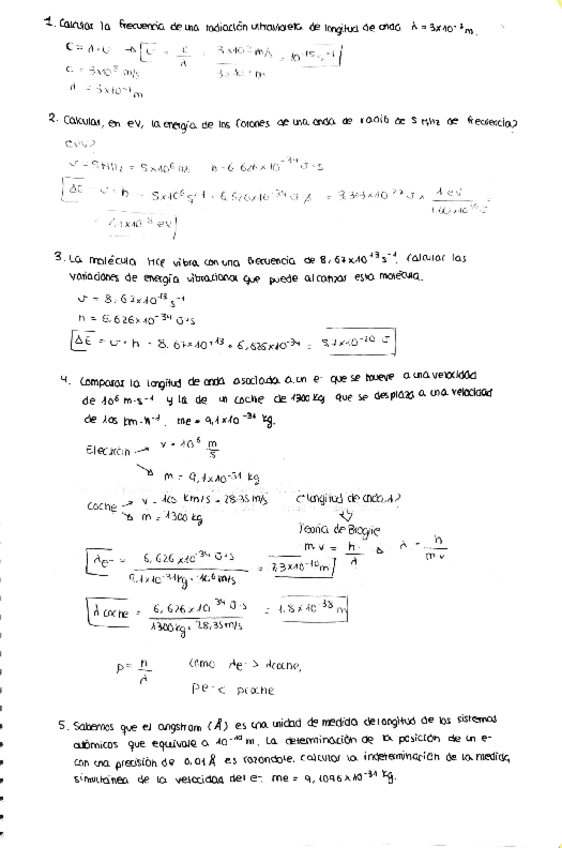 1. Calcular la frecuencia de una radiación ultravioleta de longitud de onda λ = 3x10⁻⁷ m.
C = λ·υ → υ = c/λ = 3x10⁸ m/s / 3x10⁻⁷ m = 10⁻¹⁵ s⁻¹
C = 3x10⁸ m/s
λ = 3x10⁻⁷ m
2. Calcular, en eV, la energía de los fotones de una onda de radio de 5 MHz de frecuencia?
υ = 5 MHz = 5x10⁶ Hz h = 6.626x10⁻³⁴ J·s
ΔE = υ·h = 5x10⁶ s⁻¹ · 6,626x10⁻³⁴ J·s = x 1 eV
3. La molécula HCl vibra con una frecuencia de 8,67x10¹³ s⁻¹. Calcular las
variaciones de energía vibracional que puede alcanzar esta molécula.
υ = 8.67x10¹³ s⁻¹
h = 6.626x10⁻³⁴ J·s
ΔE = υ·h = 8.67x10⁺¹³ · 6,626x10⁻³⁴ = 5,7x10⁻²⁰ J
4. Comparar la longitud de onda asociada a un e⁻ que se mueve a una velocidad
de 10⁶ m·s⁻¹ y la de un coche de 1300 kg que se desplaza a una velocidad
de 105 km·h⁻¹. me = 9,1x10⁻³¹ kg.
Electrón → v = 10⁶ m/s
m = 9,1x10⁻³¹ kg
coche → v = 105 km/s = 28.35 m/s ¿longitud de onda λ?
m = 1300 kg
Teoría de Broglie
m v = h/λ → λ = h/mv
λe⁻ = 6,626x10⁻³⁴ J·s / 9,1x10⁻³¹ kg · 10⁶ m/s = 7,3x10⁻¹⁰ m
λ coche = 6,626x10⁻³⁴ J·s / 1300 kg · 28,35 m/s = 1.8x10⁻³⁸ m
p = h/λ como λe⁻ > λcoche,
pe⁻ < pcoche
5. Sabemos que el angstrom (Å) es una unidad de medida de longitud de los sistemas
atómicos que equivale a 10⁻¹⁰ m. La determinación de la posición de un e⁻
con una precisión de 0,01 Å es razonable. calcular la indeterminación de la medida
simultánea de la velocidad del e⁻. me = 9,1096x10⁻³¹ kg.